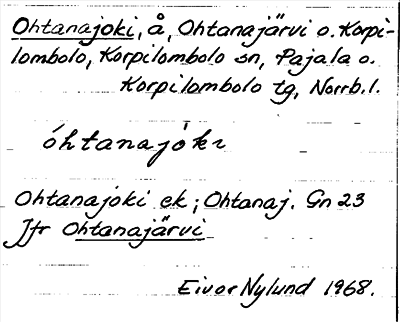 Ohtanajoki, å, Ohtanajärvi o. Korpi-
lombolo, Korpilombolo sn, Pajala o.
Korpilombolo tg, Norrb.l.
óhtanajókı
Ohtanajoki ek; Ohtanaj. Gn 23
Jfr Ohtanajärvi
Eivor Nylund 1968.